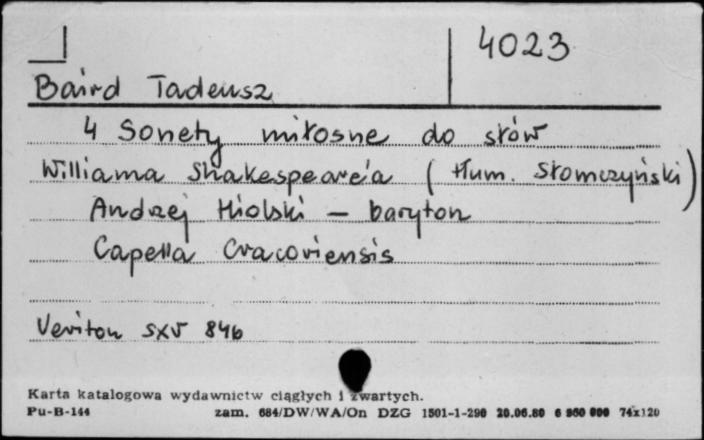 4023
Baird Tadeusz
4 Sonety miłosne do słów
Williama Shakespeare'a (tłum. Słomczyński)
Andrzej Hiolski – baryton
Capella Cracoviensis
Veriton SXV 846
Karta katalogowa wydawnictw ciągłych i zwartych.
Pu-B-144 zam. 684/DW/WA/On DZG 1501-1-290 20.06.80 6 960 000 74x120